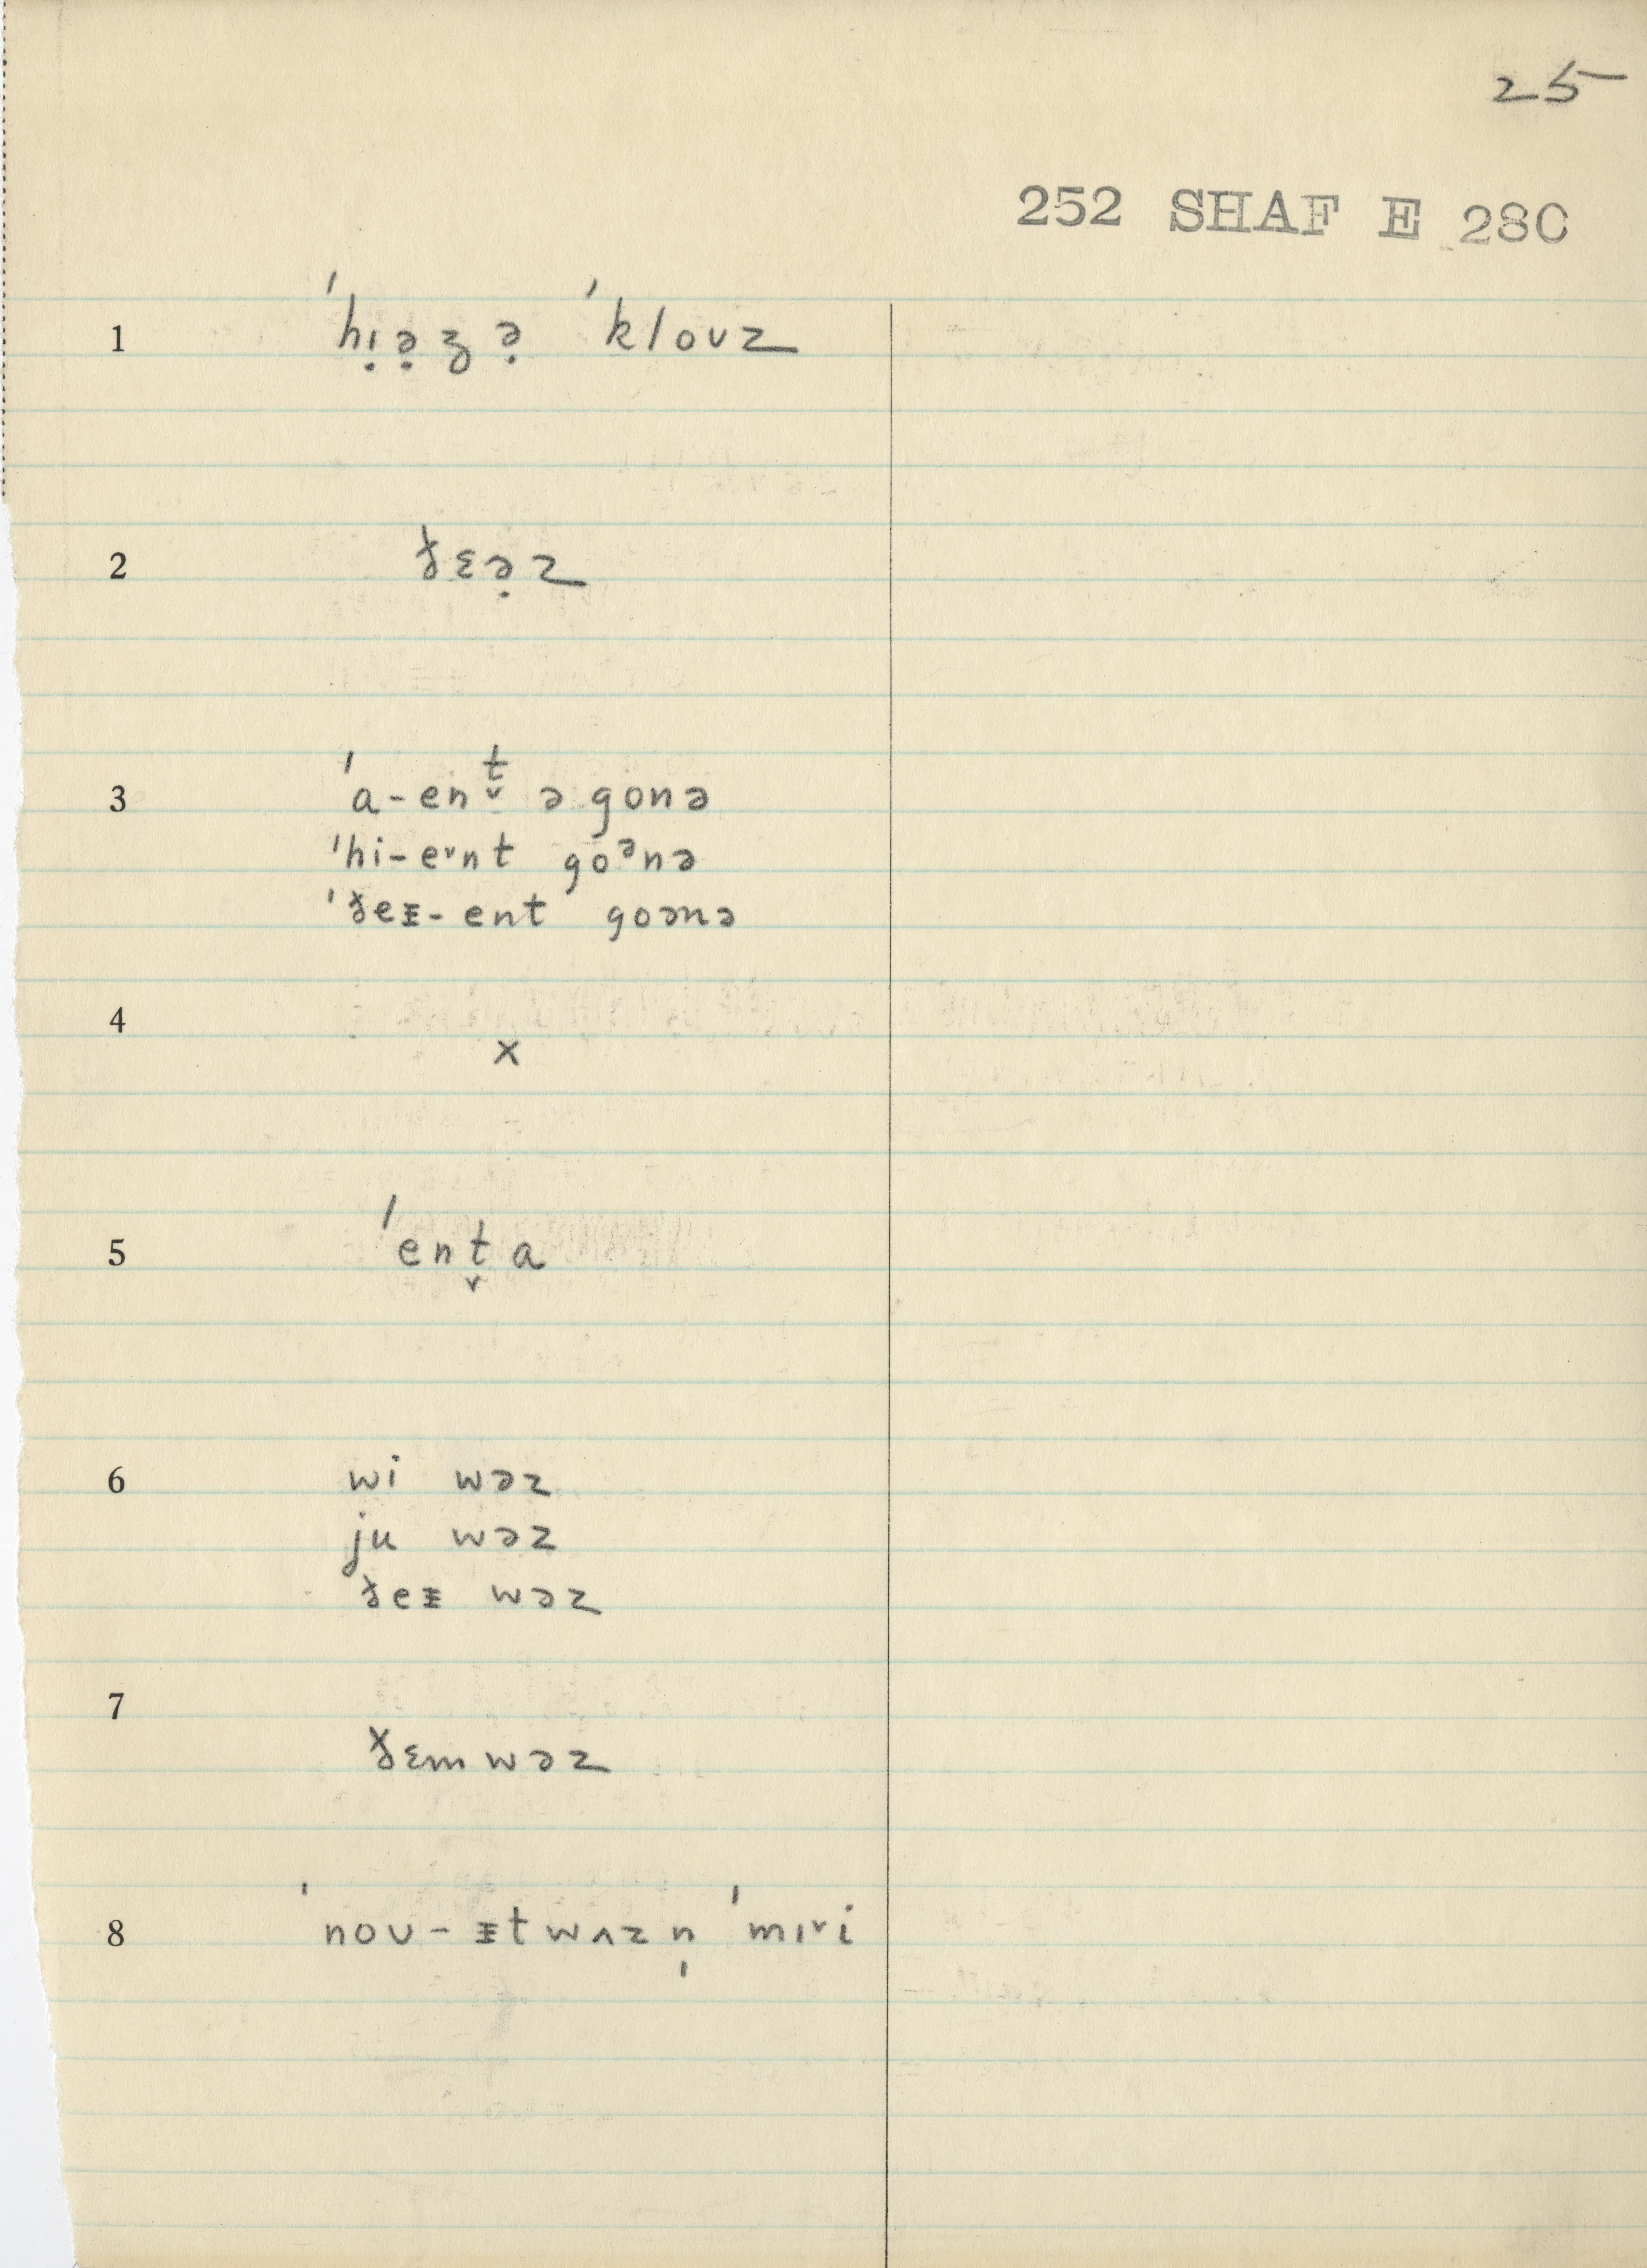 25
252 SHAF E 28C
1 ˈhɪ̣ə̣ʒə̣ ˈkloʊz
2 ðɛə̣z
3 ˈa-ent̬ ə gonə
ˈhi-eᵛnt goᵊnə
ˈðeᵻ-ent goənə
4 x
5 ˈent̬a
6 wi wəz
ju wəz
ðeᵻ wəz
7 ðɛm wəz
8 ˈnoʊ-ᵻtwʌzn̩ ˈmɪᵛi